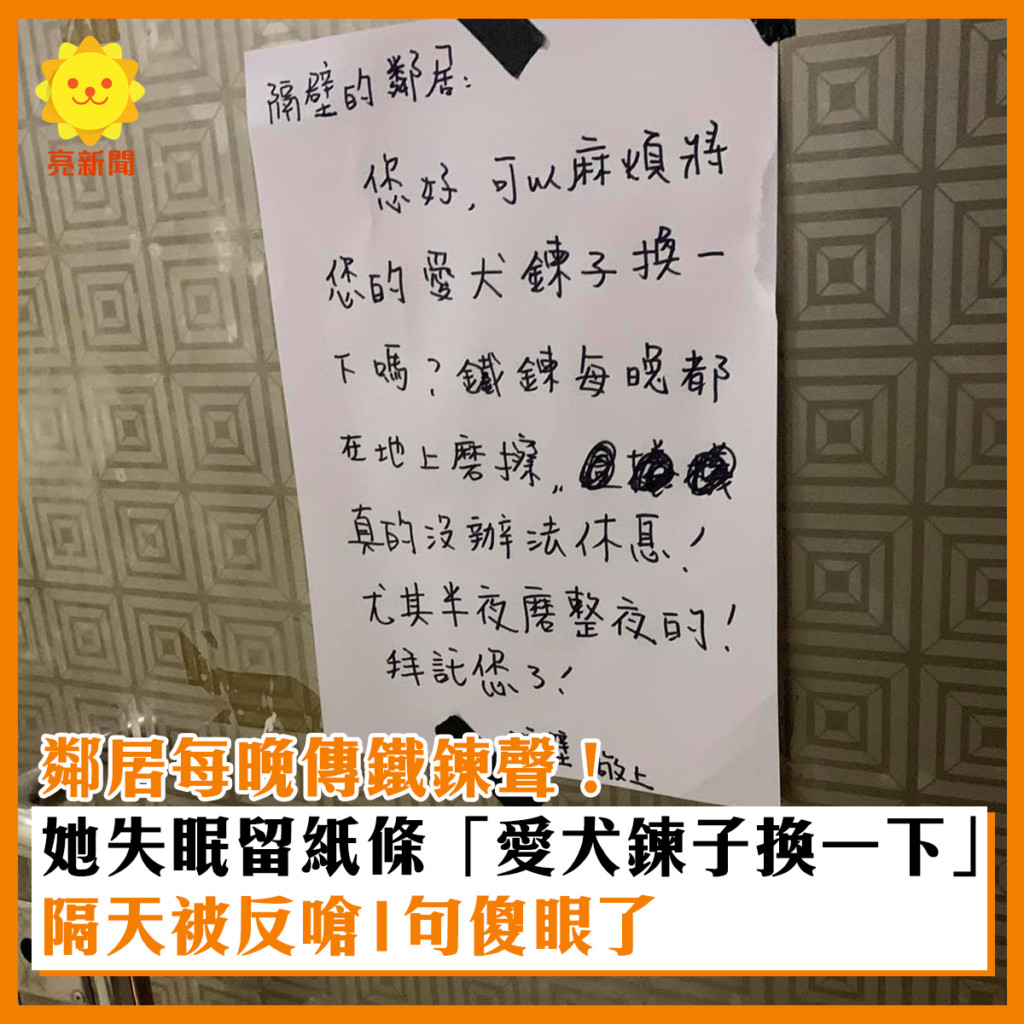 亮新聞
隔壁的鄰居:
您好,可以麻煩將
您的愛犬鍊子換一
下嗎?鐵鍊每晚都
在地上磨擦,,
真的沒辦法休息!
尤其半夜磨整夜的!
拜託您了!
壁 敬上
鄰居每晚傳鐵鍊聲!
她失眠留紙條「愛犬鍊子換一下」
隔天被反嗆1句傻眼了